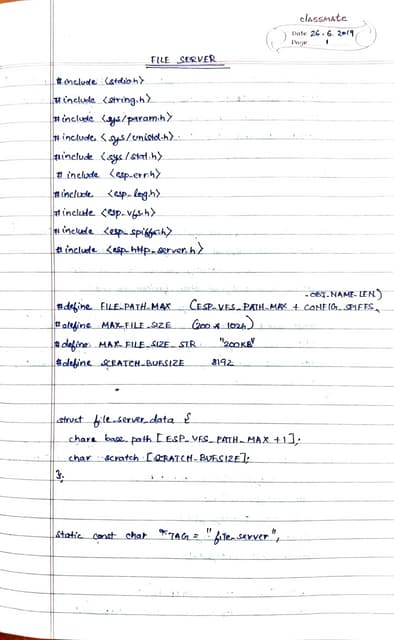 classmate
Date 26.6.2019
Page 1
FILE SERVER
#include <stdio.h>
#include <string.h>
#include <sys/param.h>
#include <sys/unistd.h>
#include <sys/stat.h>
#include <esp_err.h>
#include <esp_log.h>
#include <esp_vfs.h>
#include <esp_spiffs.h>
#include <esp_http_server.h>
-OBJ_NAME_LEN)
#define FILE_PATH_MAX (ESP_VFS_PATH_MAX + CONFIG_SPIFFS_
#define MAX_FILE_SIZE (200 * 1024)
#define MAX_FILE_SIZE_STR "200KB"
#define SCRATCH_BUFSIZE 8192
struct file_server_data {
chare base path [ESP_VFS_PATH_MAX +1];
char scratch [SCRATCH_BUFSIZE];
};
static const char *TAG = "file_server";